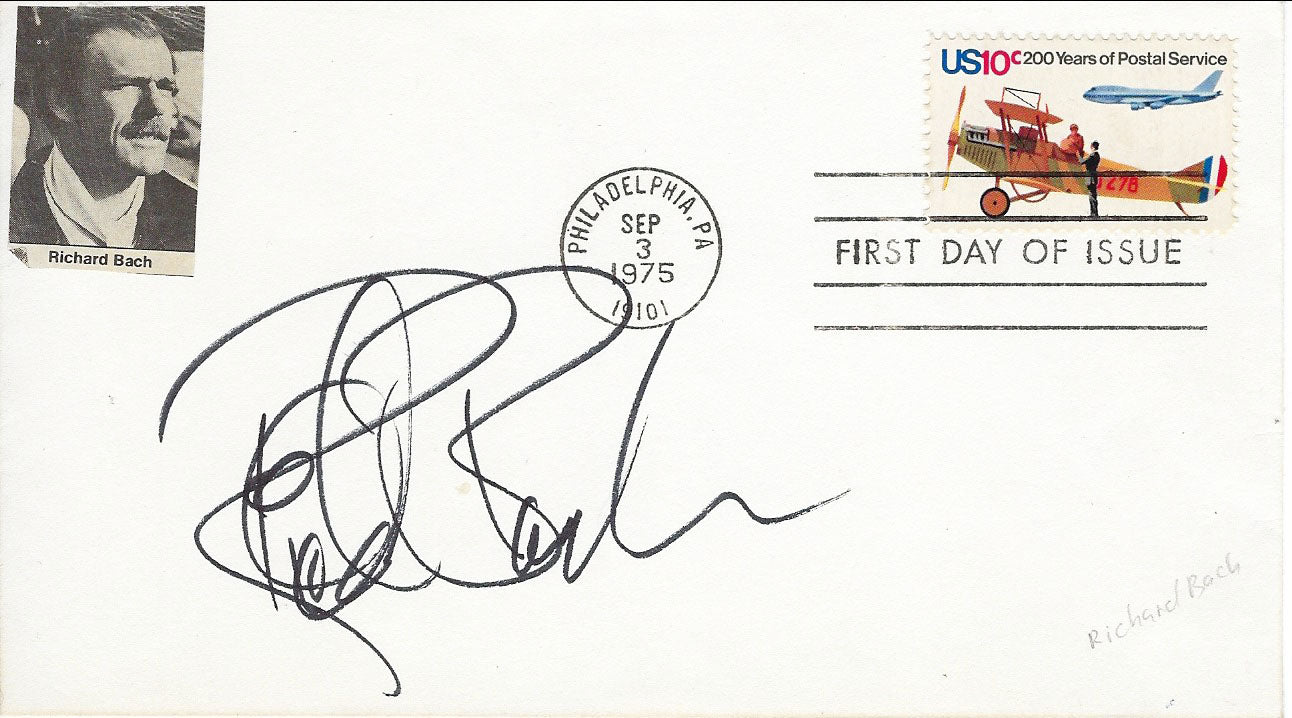 US10c 200 Years of Postal Service
J278
Richard Bach
PHILADELPHIA, PA
SEP
3
1975
19101
FIRST DAY OF ISSUE
Richard Bach
Richard Bach